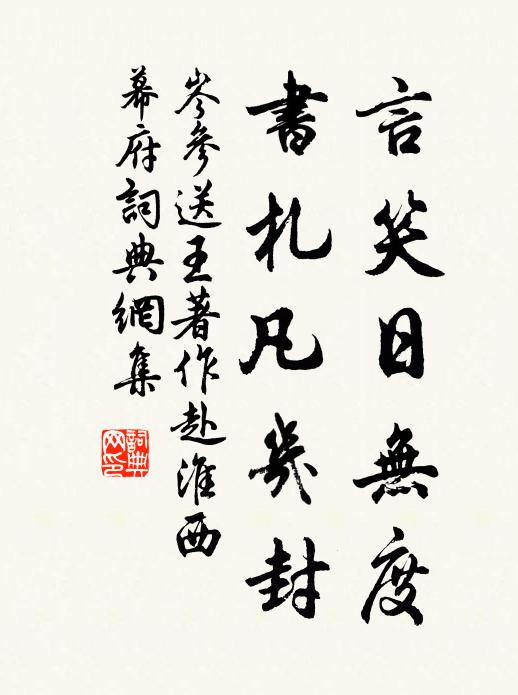 言笑日無度
書札凡幾封
岑參送王著作赴淮西
幕府詞典網集
詞典
网印